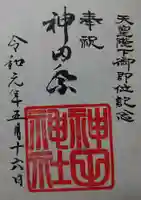 天皇陛下御即位記念
奉祝
神田祭
神田神社
令和元年五月十六日